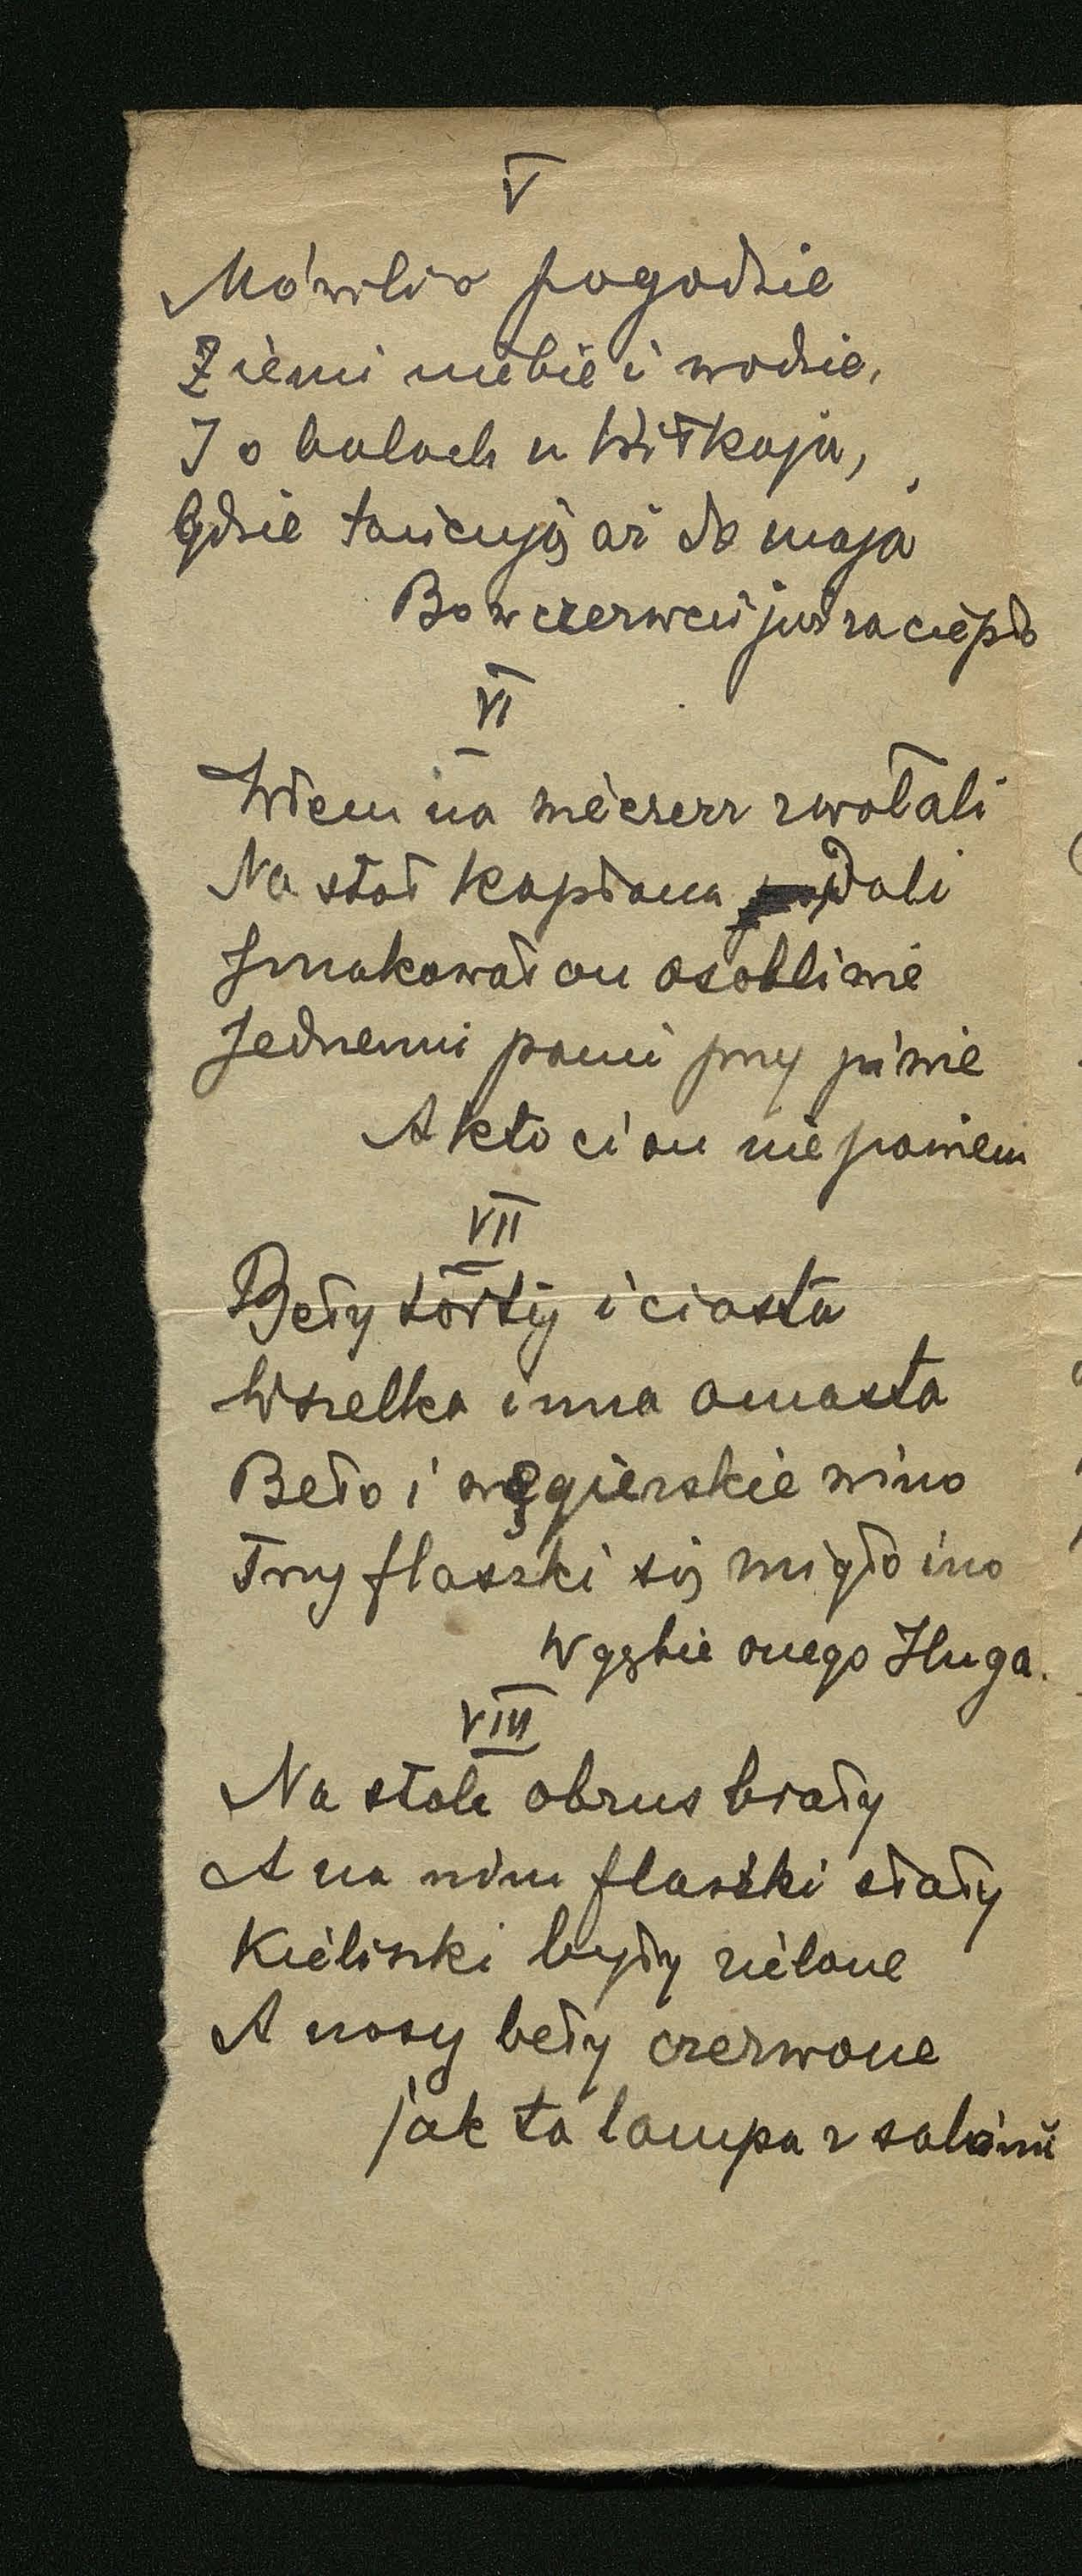 V
Mówili o pogodzie
Ziemi niebie i wodzie,
I o balach u Witkaja,
Gdzie tańcują aż do maja
Bo w czerwcu już za ciepło
VI
Wtem na wieczerz zwołali
Na stół kapłona podali
Smakował on osobliwie
Jednemu panu przy piwie
A kto ci on nie powiem
VII
Beły torty i ciasta
Wszelka inna omasta
Beło i węgierskie wino
Trzy flaszki się migło ino
W gębie onego Iluga.
VIII
Na stole obrus biały
A na nim flaszki stały
Kieliszki były zielone
A nosy beły czerwone
jak ta lampa z salonu